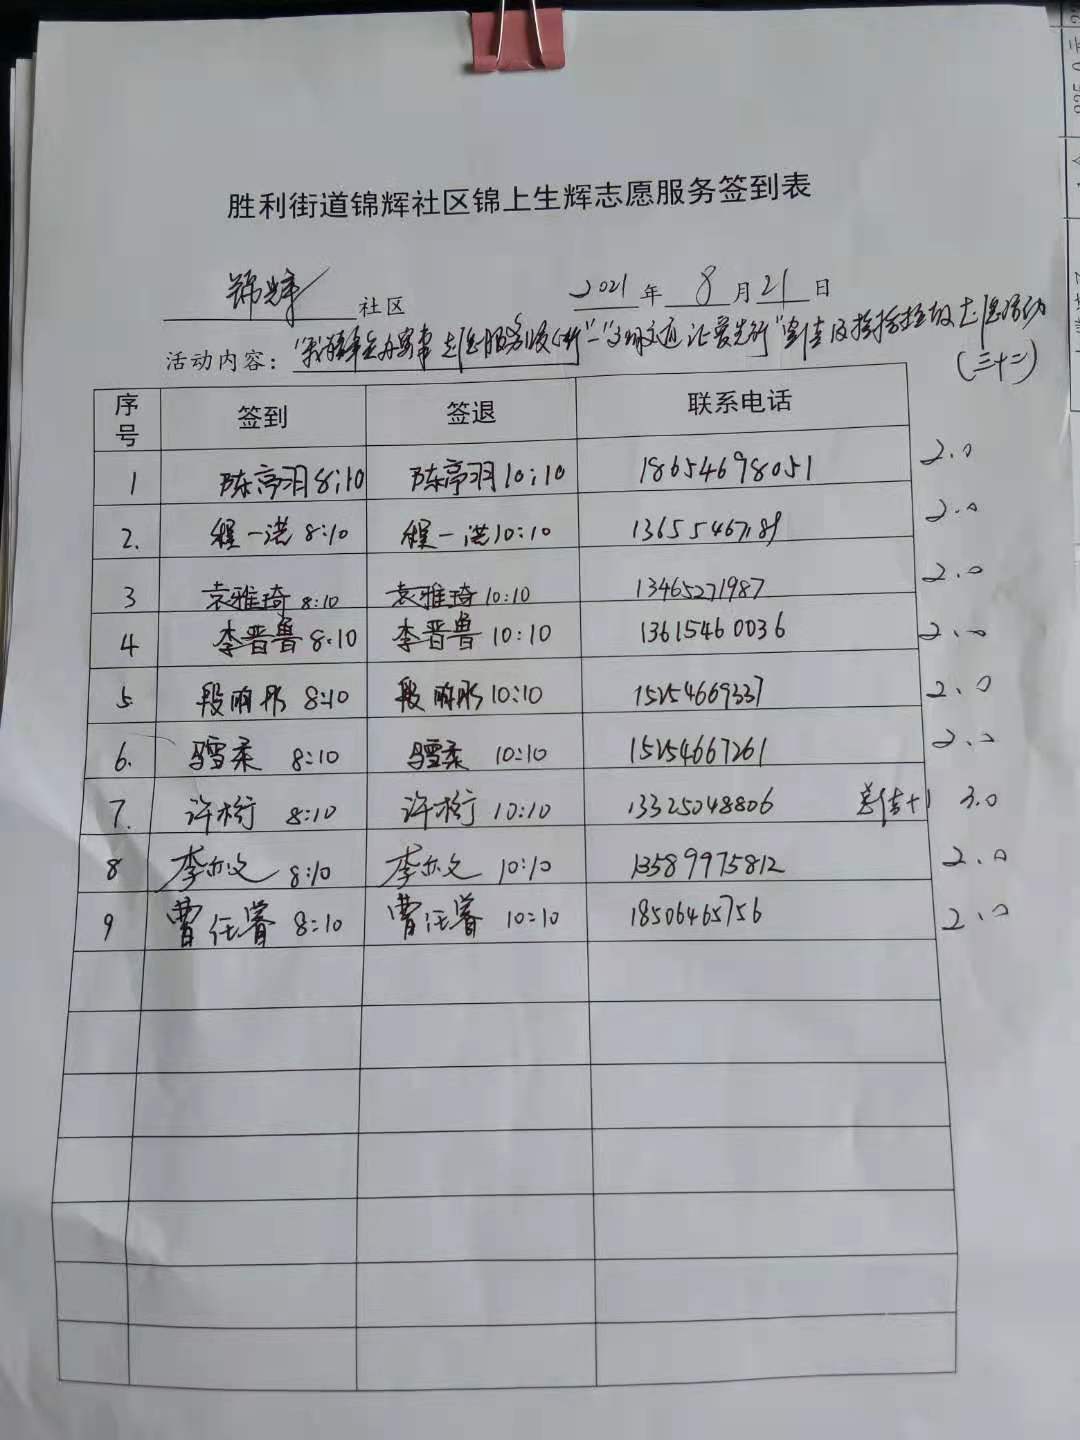 胜利街道锦辉社区锦上生辉志愿服务签到表
锦辉 社区 2021 年 8 月 21 日
活动内容: "我为群众办实事 志愿服务我先行"—"文明交通 让爱先行"宣传及捡拾垃圾志愿活动
(三十二)
序号 签到 签退 联系电话
1 陈亭羽 8:10 陈亭羽 10:10 18654698051 2.0
2. 程一洪 8:10 程一洪 10:10 13655467189 2.0
3 袁雅琦 8:10 袁雅琦 10:10 13465271987 2.0
4 李晋鲁 8:10 李晋鲁 10:10 13615460036 2.0
5 段 8:10 段 10:10 15254669337 2.0
6. 马雪柔 8:10 马雪柔 10:10 15254667261 2.0
7. 许桁 8:10 许桁 10:10 13325048806 总结+1 3.0
8 李亦文 8:10 李亦文 10:10 13589975812 2.0
9 曹任睿 8:10 曹任睿 10:10 18506465756 2.0